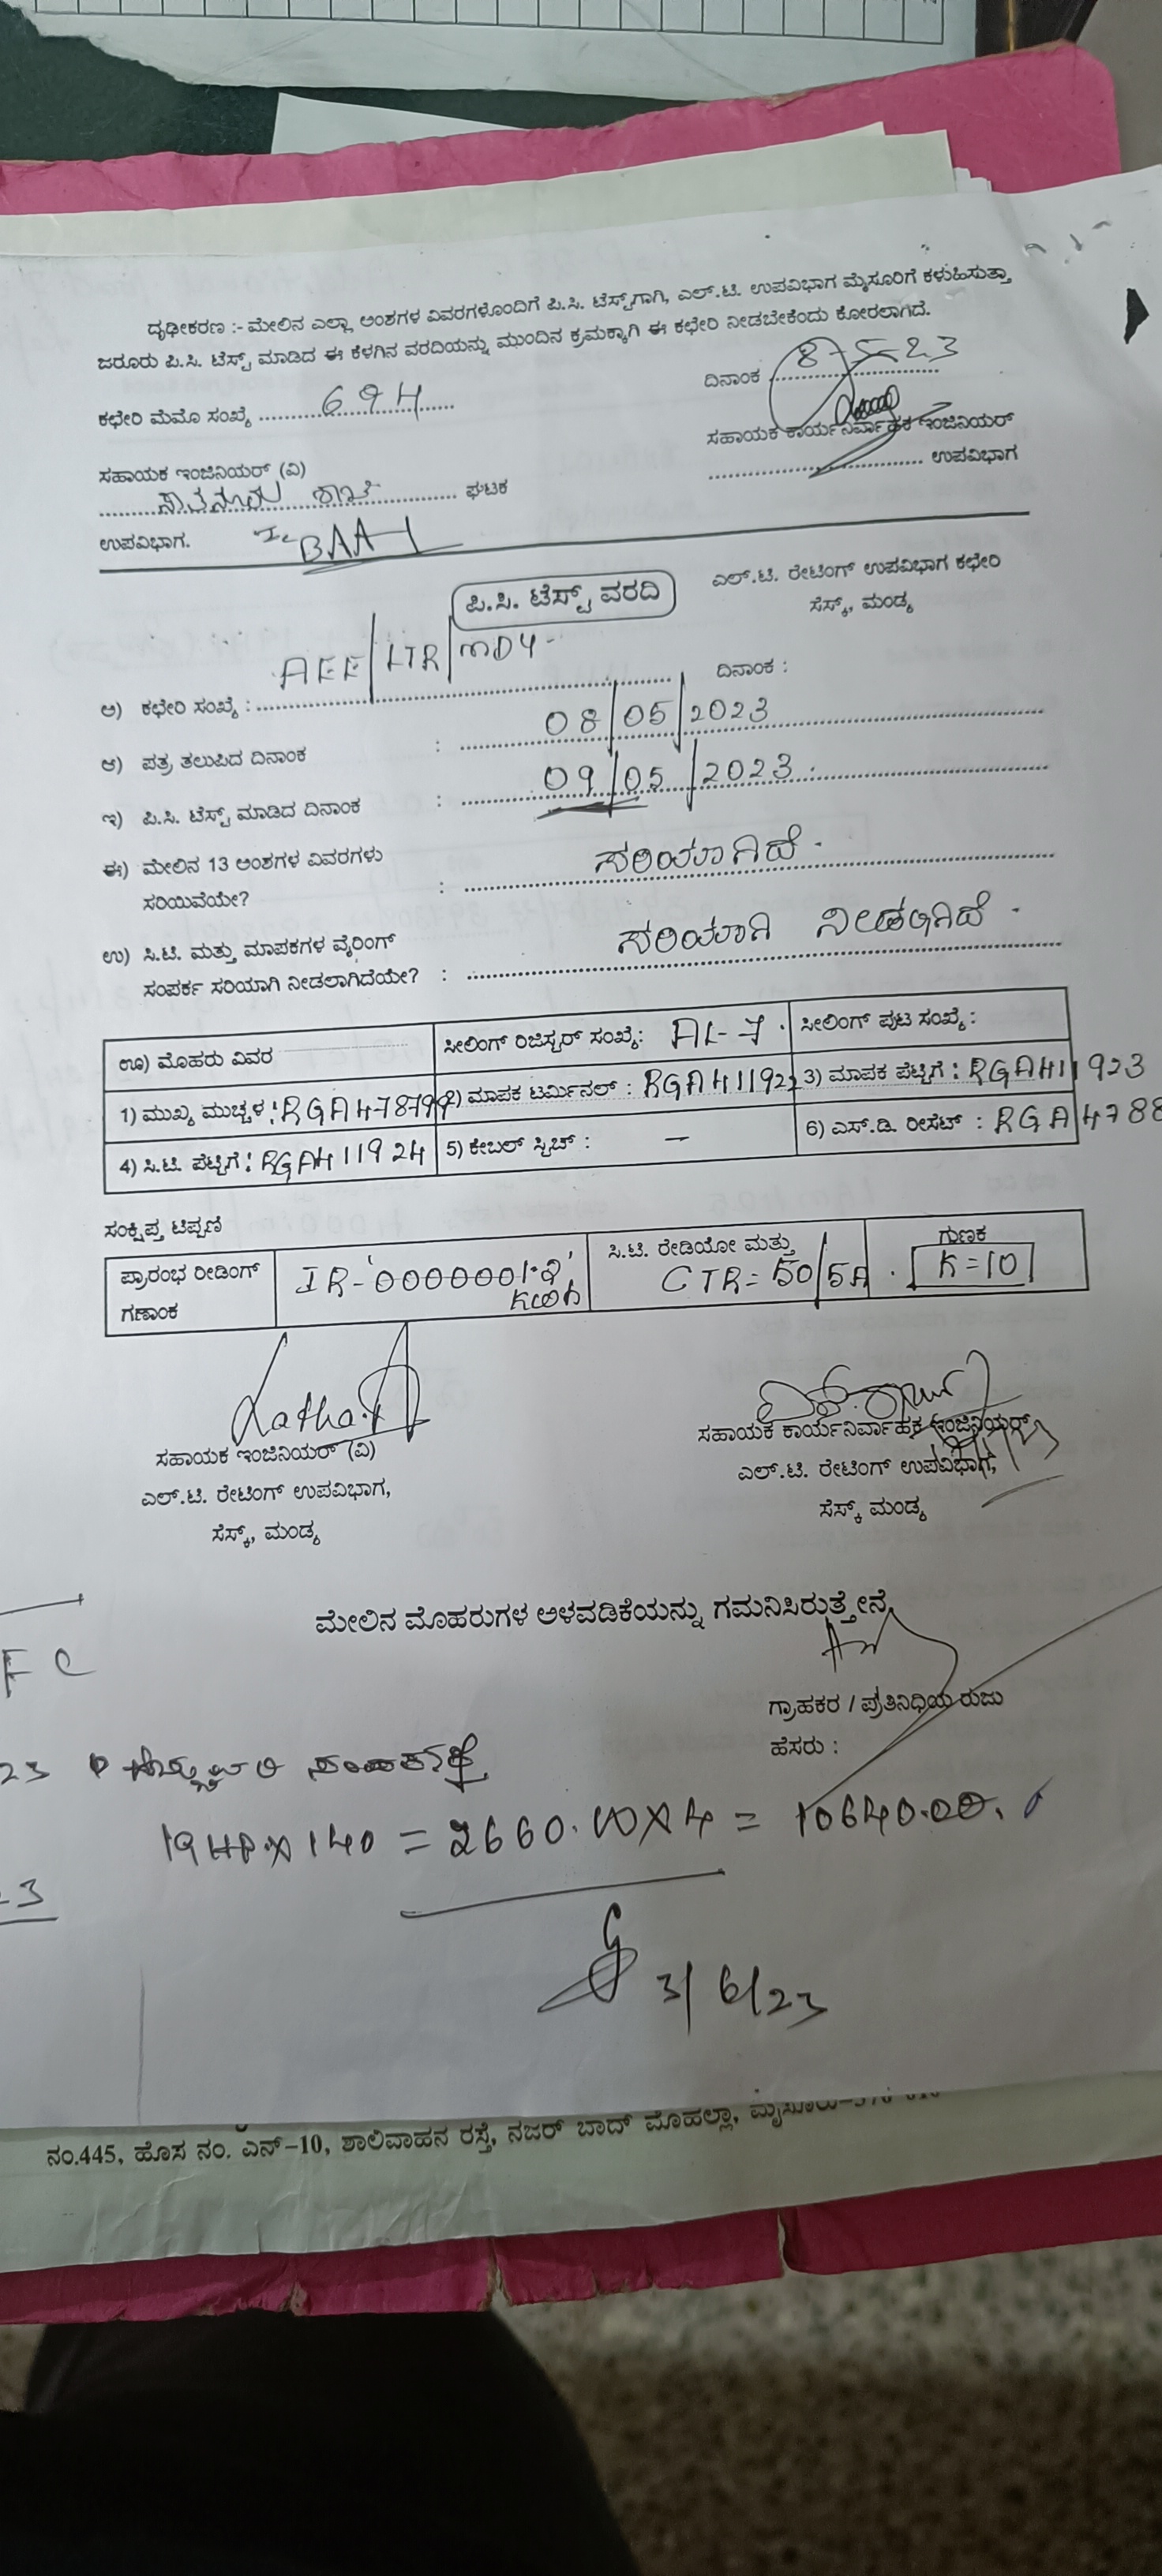 ದೃಢೀಕರಣ :- ಮೇಲಿನ ಎಲ್ಲಾ ಅಂಶಗಳ ವಿವರಗಳೊಂದಿಗೆ ಪಿ.ಸಿ. ಟೆಸ್ಟ್‌ಗಾಗಿ, ಎಲ್.ಟಿ. ಉಪವಿಭಾಗ ಮೈಸೂರಿಗೆ ಕಳುಹಿಸುತ್ತಾ
ಜರೂರು ಪಿ.ಸಿ. ಟೆಸ್ಟ್ ಮಾಡಿದ ಈ ಕೆಳಗಿನ ವರದಿಯನ್ನು ಮುಂದಿನ ಕ್ರಮಕ್ಕಾಗಿ ಈ ಕಛೇರಿ ನೀಡಬೇಕೆಂದು ಕೋರಲಾಗಿದೆ.
ಕಛೇರಿ ಮೆಮೊ ಸಂಖ್ಯೆ 694 ದಿನಾಂಕ 8-5-23
ಸಹಾಯಕ ಕಾರ್ಯನಿರ್ವಾಹಕ ಇಂಜಿನಿಯರ್
ಉಪವಿಭಾಗ
ಸಹಾಯಕ ಇಂಜಿನಿಯರ್ (ವಿ)
ಘಟಕ
ಉಪವಿಭಾಗ.
ಪಿ.ಸಿ. ಟೆಸ್ಟ್ ವರದಿ
ಎಲ್.ಟಿ. ರೇಟಿಂಗ್ ಉಪವಿಭಾಗ ಕಛೇರಿ
ಸೆಸ್ಕ್, ಮಂಡ್ಯ
ಅ) ಕಛೇರಿ ಸಂಖ್ಯೆ : AEE/LTR/MDY- ದಿನಾಂಕ :
ಆ) ಪತ್ರ ತಲುಪಿದ ದಿನಾಂಕ : 08/05/2023
ಇ) ಪಿ.ಸಿ. ಟೆಸ್ಟ್ ಮಾಡಿದ ದಿನಾಂಕ : 09/05/2023
ಈ) ಮೇಲಿನ 13 ಅಂಶಗಳ ವಿವರಗಳು
ಸರಿಯಿವೆಯೇ? : ಸರಿಯಾಗಿದೆ.
ಉ) ಸಿ.ಟಿ. ಮತ್ತು ಮಾಪಕಗಳ ವೈರಿಂಗ್
ಸಂಪರ್ಕ ಸರಿಯಾಗಿ ನೀಡಲಾಗಿದೆಯೇ? : ಸರಿಯಾಗಿ ನೀಡಲಾಗಿದೆ.
ಊ) ಮೊಹರು ವಿವರ ಸೀಲಿಂಗ್ ರಿಜಿಸ್ಟರ್ ಸಂಖ್ಯೆ: AL-7. ಸೀಲಿಂಗ್ ಪುಟ ಸಂಖ್ಯೆ :
1) ಮುಖ್ಯ ಮುಚ್ಚಳ : 2) ಮಾಪಕ ಟರ್ಮಿನಲ್ : 3) ಮಾಪಕ ಪೆಟ್ಟಿಗೆ : RGA411923
4) ಸಿ.ಟಿ. ಪೆಟ್ಟಿಗೆ : RGA411924 5) ಕೇಬಲ್ ಸ್ವಿಚ್ : — 6) ಎಸ್.ಡಿ. ರೀಸೆಟ್ : RGA4788
ಸಂಕ್ಷಿಪ್ತ ಟಿಪ್ಪಣಿ
ಪ್ರಾರಂಭ ರೀಡಿಂಗ್
ಗಣಾಂಕ
IR- kwh
ಸಿ.ಟಿ. ರೇಡಿಯೋ ಮತ್ತು
CTR= 50/5A.
ಗುಣಕ
K=10
Latha
ಸಹಾಯಕ ಇಂಜಿನಿಯರ್ (ವಿ)
ಎಲ್.ಟಿ. ರೇಟಿಂಗ್ ಉಪವಿಭಾಗ,
ಸೆಸ್ಕ್, ಮಂಡ್ಯ
ಸಹಾಯಕ ಕಾರ್ಯನಿರ್ವಾಹಕ ಇಂಜಿನಿಯರ್
ಎಲ್.ಟಿ. ರೇಟಿಂಗ್ ಉಪವಿಭಾಗ,
ಸೆಸ್ಕ್ ಮಂಡ್ಯ
ಮೇಲಿನ ಮೊಹರುಗಳ ಅಳವಡಿಕೆಯನ್ನು ಗಮನಿಸಿರುತ್ತೇನೆ
ಗ್ರಾಹಕರ / ಪ್ರತಿನಿಧಿಯ ರುಜು
ಹೆಸರು :
FC
23
19HP X 140 = 2660.00 X 4 = 10640.00.
3/6/23
ನಂ.445, ಹೊಸ ನಂ. ಎನ್-10, ಶಾಲಿವಾಹನ ರಸ್ತೆ, ನಜರ್ ಬಾದ್ ಮೊಹಲ್ಲಾ, ಮೈಸೂರು-570 010